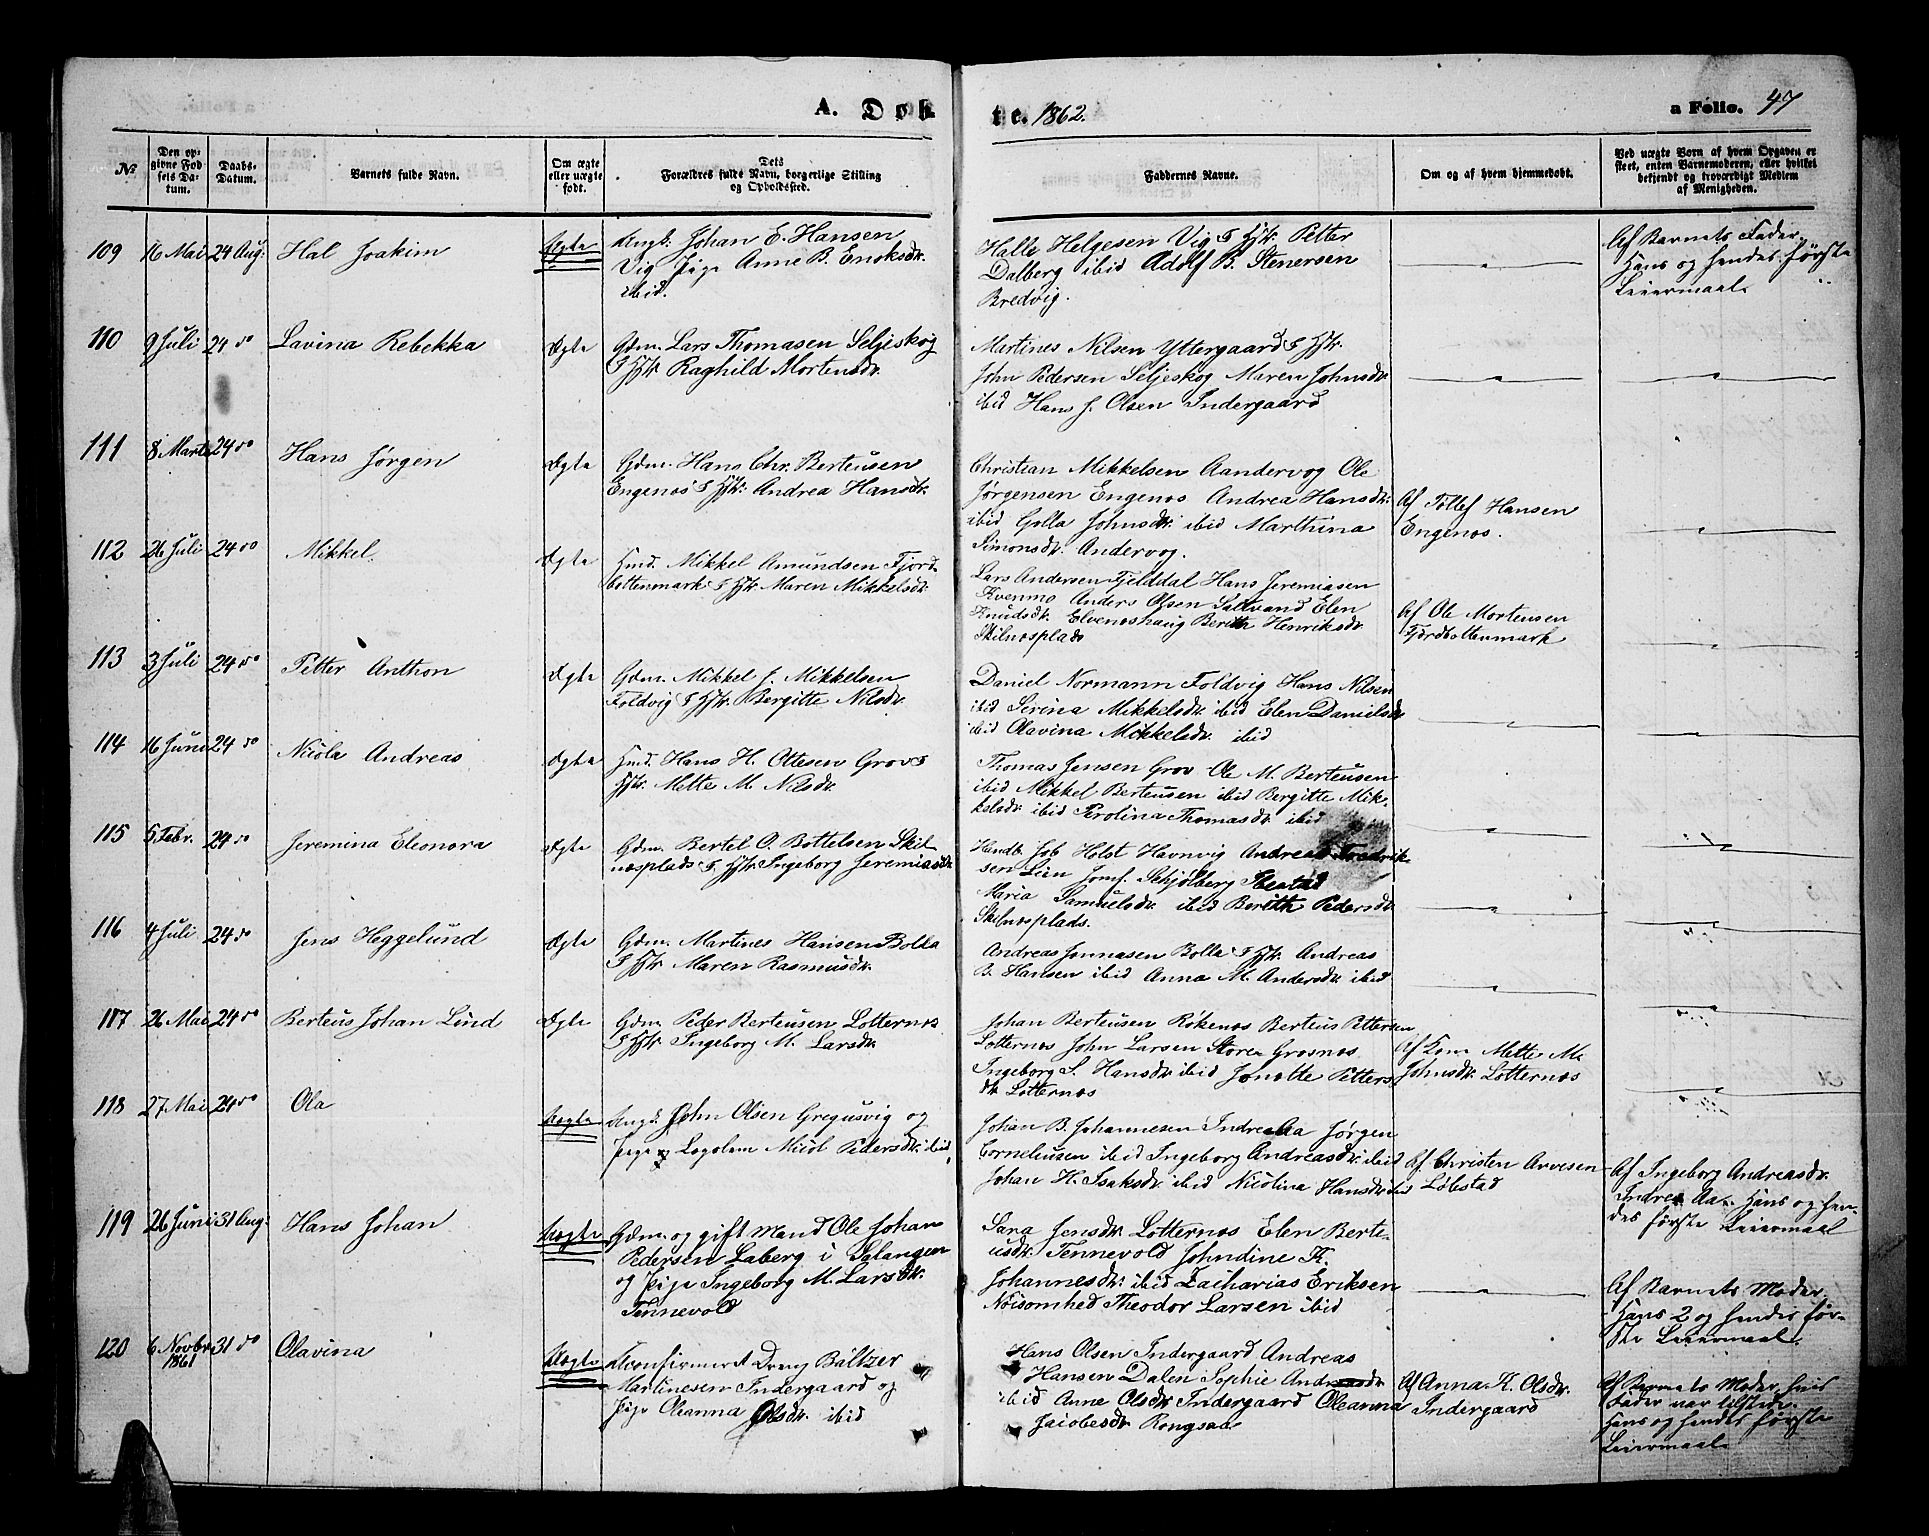 A. Døb
te. 1862.
a Folio. 47
No
Den op-
givne Fød-
sels Da-
tum.
Daabs-
Datum.
Barnets fulde Navn.
Om ægte
eller uægte
født.
Dets
Forældres fulde Navn, borgerlige Stilling
og Opholdssted.
Faddernes Navne.
Om og af hvem hjemmedøbt.
Ved uægte Børn af hvem Opgaven er
skeet, enten Barnemoderen, eller hvilket
bekjendt og troværdigt Medlem
af Menigheden.
109 16 Mai 24 Aug: Hal Joakim
Uægte
Ungk: Johan E. Hansen
Vig Pige Anne B. Enoksdr.
ibid.
Halle Helgesen Vig & Hst. Petter
Dalberg ibid Adolf B. Stenersen
Bredvig.
Af Barnets Fader.
Hans og hendes første
Leiermaal.
110 9 Juli 24 do Lavina Rebekka
Ægte
Gdm. Lars Thomasen Seljeskog
& Hst. Raghild Mortensdr.
Martines Nilsen Yttergaard & Hst.
John Pedersen Seljeskog Maren Johnsdr.
ibid Hans J. Olsen Indergaard
111 8 Marts 24 do Hans Jørgen
Ægte
Gdm. Hans Chr. Berteusen
Engenes & Hst. Andrea Hansdr.
Christian Mikkelsen Aandervog Ole
Jørgensen Engenes Andrea Hansdr.
ibid Golla Johnsdr. ibid Marthina
Simonsdr. Andervog.
Af Tollef Hansen
Engenes.
112 26 Juli 24 do Mikkel.
Ægte
Hmd. Mikkel Amundsen Fjord-
bottenmark & Hst. Maren Mikkelsdr.
Lars Andersen Fjelddal Hans Jeremiasen
Kvenmo Anders Olsen Saltvand Elen
Knudsdr. Elveneshaug Berith Henriksdr.
Skilnesplads
Af Ole Mortensen
Fjordbottenmark
113 3 Juli 24 do Petter Anthon
Ægte
Gdm. Mikkel J. Mikkelsen
Foldvig & Hst. Bergitte Nilsdr.
Daniel Normann Foldvig Hans Nilsen
ibid Serina Mikkelsdr. ibid Elen Danielsdr.
ibid Olavina Mikkelsdr. ibid
114 16 Juni 24 do Nicola Andreas
Ægte
Hmd. Hans H. Ottesen Grov &
Hst. Mette M. Nilsdr.
Thomas Jensen Grov Ole M. Berteusen
ibid Mikkel Berteusen ibid Bergitte Mik-
kelsdr. ibid Perolina Thomasdr. ibid
115 5 Febr. 24 do Jeremina Eleonora
Ægte
Gdm. Bertel O. Bottelsen Skil-
nesplads & Hst. Ingeborg Jeremiasdr.
Handb. Job Holst Havnvig Andreas Fredrik-
sen Lien Jomf. Schjølberg
Maria Samuelsdr. ibid Berith Pedersdr.
Skilnesplads.
116 4 Juli 24 do Jens Heggelund
Ægte
Gdm. Martines Hansen Bolla
& Hst. Maren Rasmusdr.
Andreas Jonnasen Bolla & Hst. Andreas
B. Hansen ibid Anna M. Andersdr. ibid
117 26 Mai 24 do Berteus Johan Lind
Ægte
Gdm. Peder Berteusen Lotternes
& Hst. Ingeborg M. Larsdr.
Johan Berteusen Røkenes Berteus Pettersen
Lotternes John Larsen Store Grosnes
Ingeborg S. Hansdr. ibid Jonette Petters-
dr. Lotternes
Af Kone Mette M.
Johnsdr. Lotternes
118 27 Mai 24 do Ola
Uægte
Ungk. John Olsen Gregusvig og
Pige Logolem Nicol Pedersdr. ibid
Johan B. Johannesen Indre Aa Jørgen
Corneliusen ibid Ingeborg Andreasdr. ibid
Johan H. Isaksdr. ibid Nicolina Hansdr. ibid
Af Christen Arvesen
Løbstad
Af Ingeborg Andreasdr.
Indre Aa. Hans og hen-
des første Leiermaal
119 26 Juni 31 Aug: Hans Johan
Uægte
Gdm. og gift Mand Ole Johan
Pedersen Laberg i Salangen
og Pige Ingeborg M. Larsdr.
Tennevold
Sara Jensdr. Lotternes Elen Berte-
usdr. Tennevold Johndine K.
Johannesdr. ibid Zacharias Eriksen
Nøisomhed Theodor Larsen ibid
Af Barnets Moder.
Hans 2 og hendes før-
ste Leiermaal.
120 6 Novbr. 1861 31 do Olavina
Uægte
Konfirmeret Dreng Baltzer
Martinesen Indergaard og
Pige Oleanna Olsdr. ibid
Hans Olsen Indergaard Andreas
Hansen Dalen Sophie
ibid Anne Olsdr. Indergaard Oleanna
Jacobsdr. Rongsaa
Af Anna K. Olsdr.
Indergaard
Af Barnets Moder, hvis
Fader var tilstede.
Hans og hendes første
Leiermaal